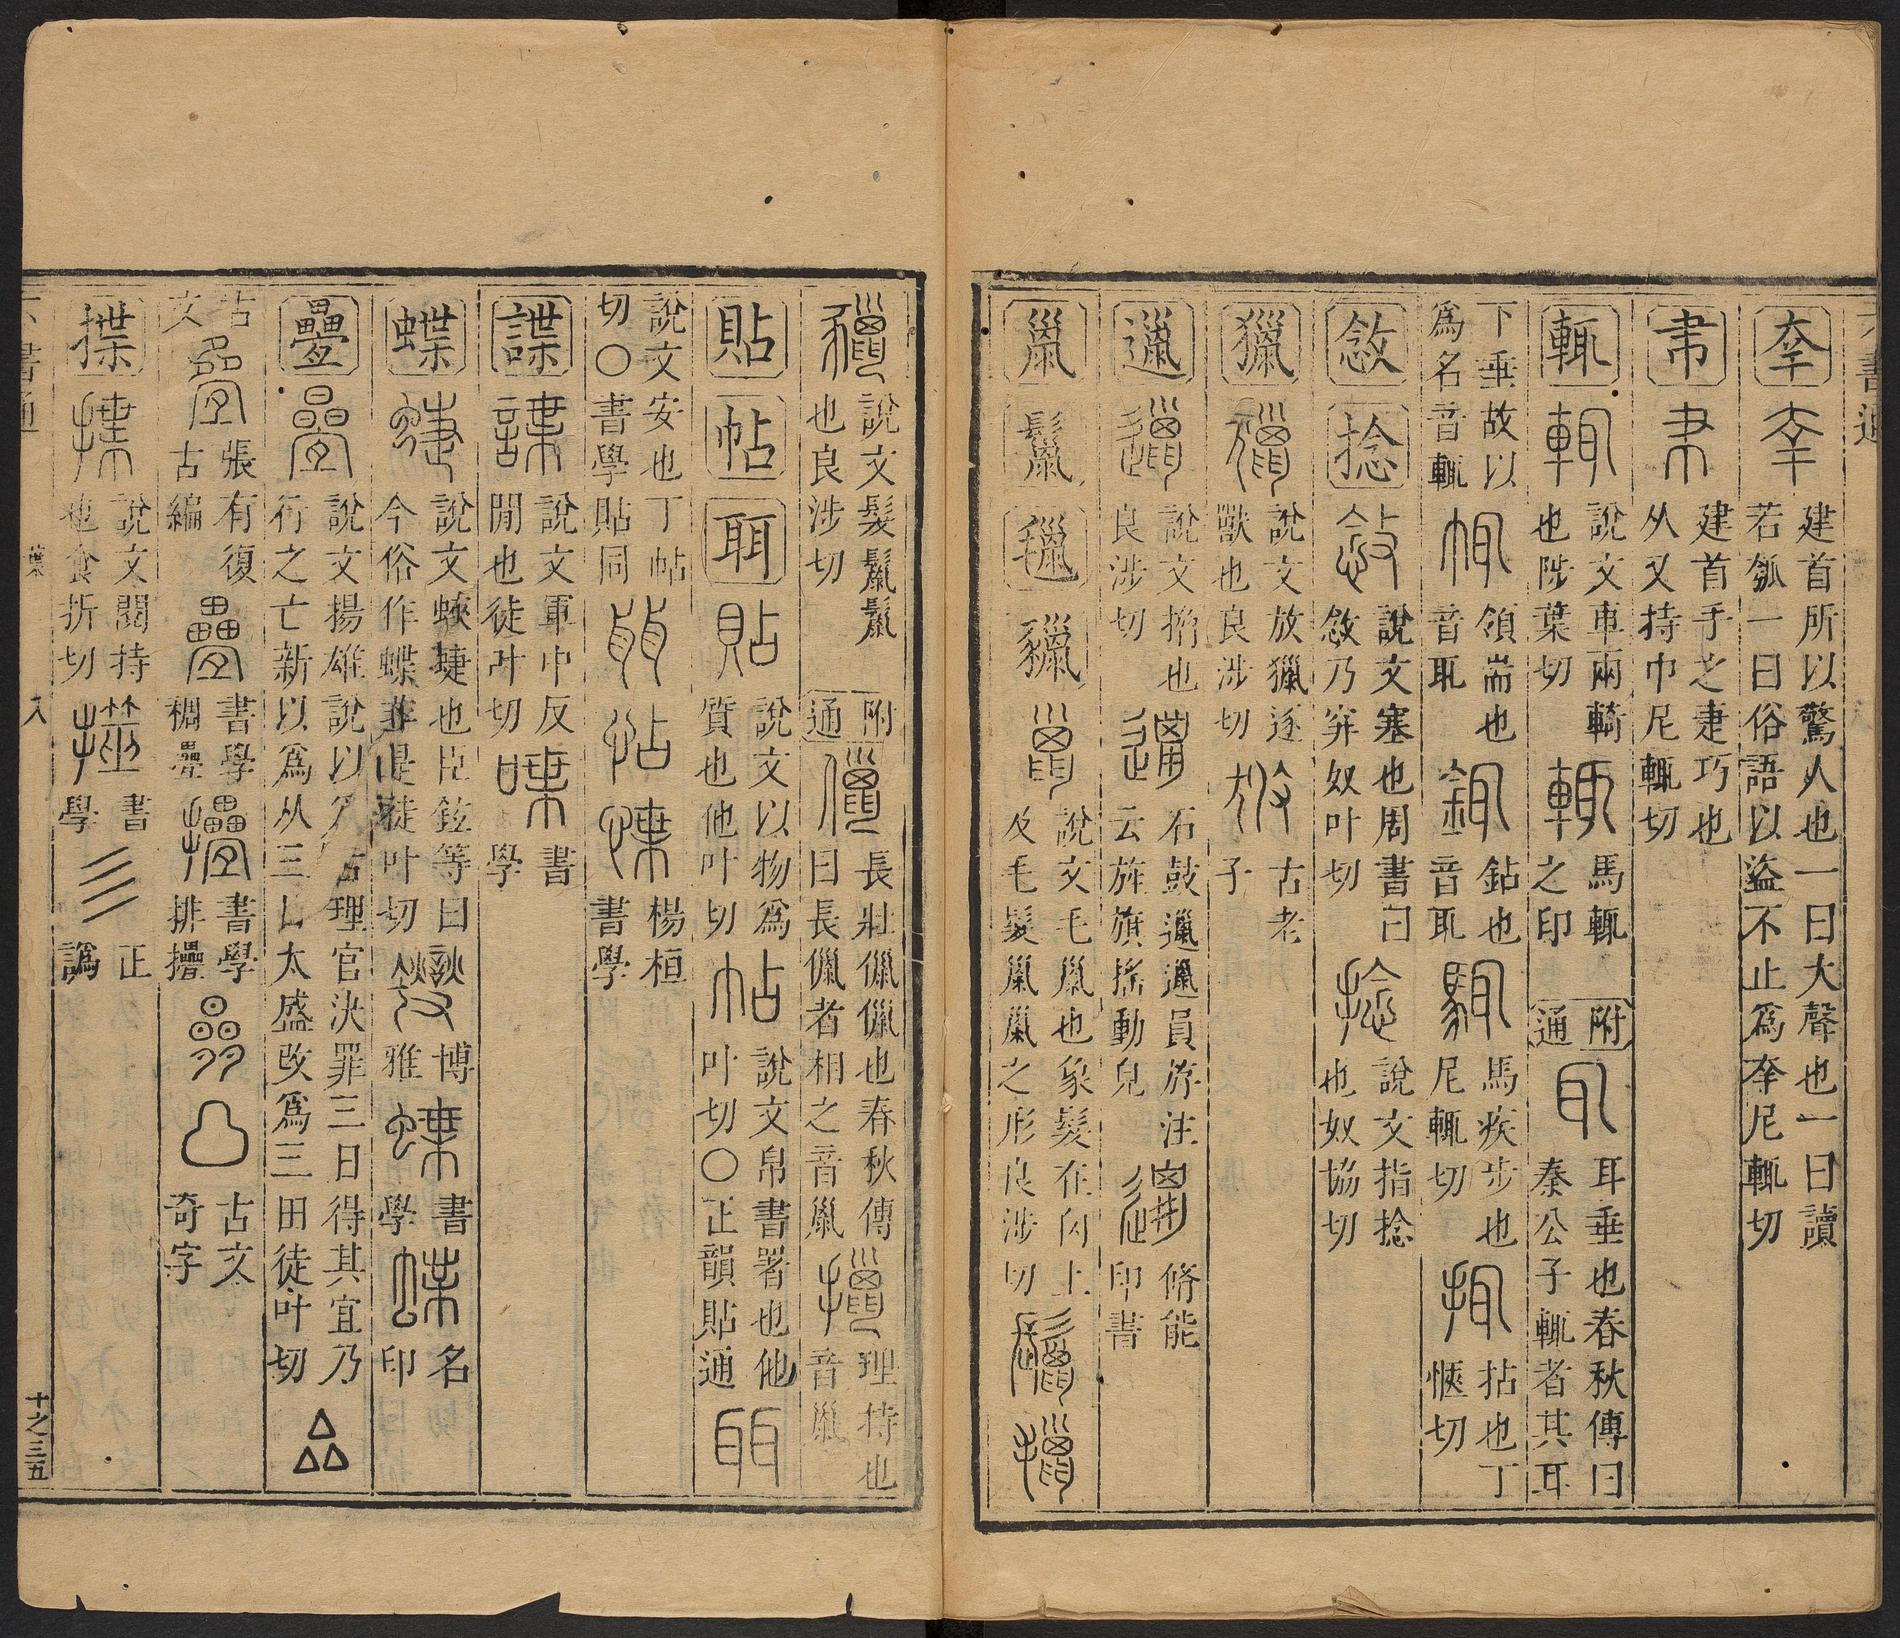 㚔 建首所以驚人也一曰大聲也一曰讀
若瓠一曰俗語以盜不止爲㚔尼輒切
𦘒 建首手之疌巧也
从又持巾尼輒切
輒 說文車兩輢
也陟葉切
馬輒
之印
附通
耳垂也春秋傳曰
秦公子輒者其耳
下垂故以
爲名音輒
領耑也
音耴
鉆也
音耴
馬疾步也
尼輒切
拈也丁
愜切
敜 捻 說文塞也周書曰
敜乃穽奴叶切
說文指捻
也奴協切
獵 說文放獵逐
獸也良涉切
古老
子
邋 說文搚也
良涉切
石鼓邋邋員斿注
云旌旗搖動皃
脩能
印書
巤 鬣 說文毛巤也象髮在囟上
及毛髮巤巤之形良涉切
說文髮鬣鬣
也良涉切
附通
長壯儠儠也春秋傳
曰長儠者相之音巤
理持也
音巤
貼 帖 耴 說文以物爲
質也他叶切
說文帛書署也他
叶切〇正韻貼通
說文安也丁帖
切〇書學貼同
楊桓
書學
諜 說文軍中反
間也徒叶切
書
學
蝶 說文蛺蜨也臣鉉等曰
今俗作蝶並非是徒叶切
博
雅
書
學
名
印
疊 說文揚雄說以爲古理官決罪三日得其宜乃
行之亡新以爲从三日太盛改爲三田徒叶切
古
文
張有復
古編
書學
稠疊
書學
排㩹
古文
奇字
揲 說文閱持
也食折切
書
學
正
譌
六書通
葉
入
十之三五